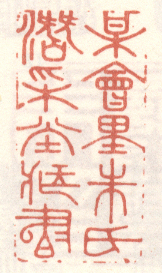 某會里朱氏
潛采堂藏書